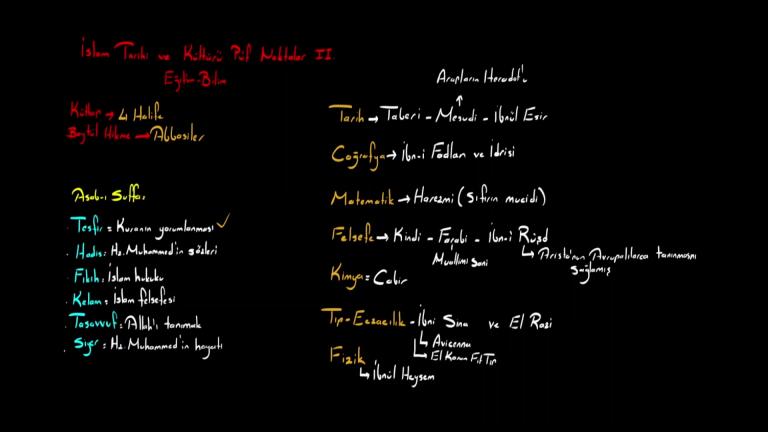 İslam Tarihi ve Kültürü Püf Noktalar II
Eğitim-Bilim
Küttap → 4 Halife
Beytül Hikme → Abbasiler
Asab-ı Suffa:
Tefsir = Kuranın yorumlanması ✓
Hadis: Hz. Muhammed'in sözleri
Fıkıh: İslam hukuku
Kelam: İslam felsefesi
Tasavvuf: Allah'ı tanımak
Siyer: Hz. Muhammed'in hayatı
Arapların Heredot'u
Tarih → Taberi - Mesudi - İbnül Esir
Coğrafya → İbn-i Fadlan ve İdrisi
Matematik → Harezmi (sıfırın mucidi)
Felsefe → Kindi - Farabi - İbn-i Rüşd
Muallimi Sani
Aristo'nun Avrupalılarca tanınmasını
sağlamış
Kimya = Cabir
Tıp-Eczacılık - İbni Sina ve El Razi
Avicenna
El Kanun Fit Tıp
Fizik
İbnül Heysem